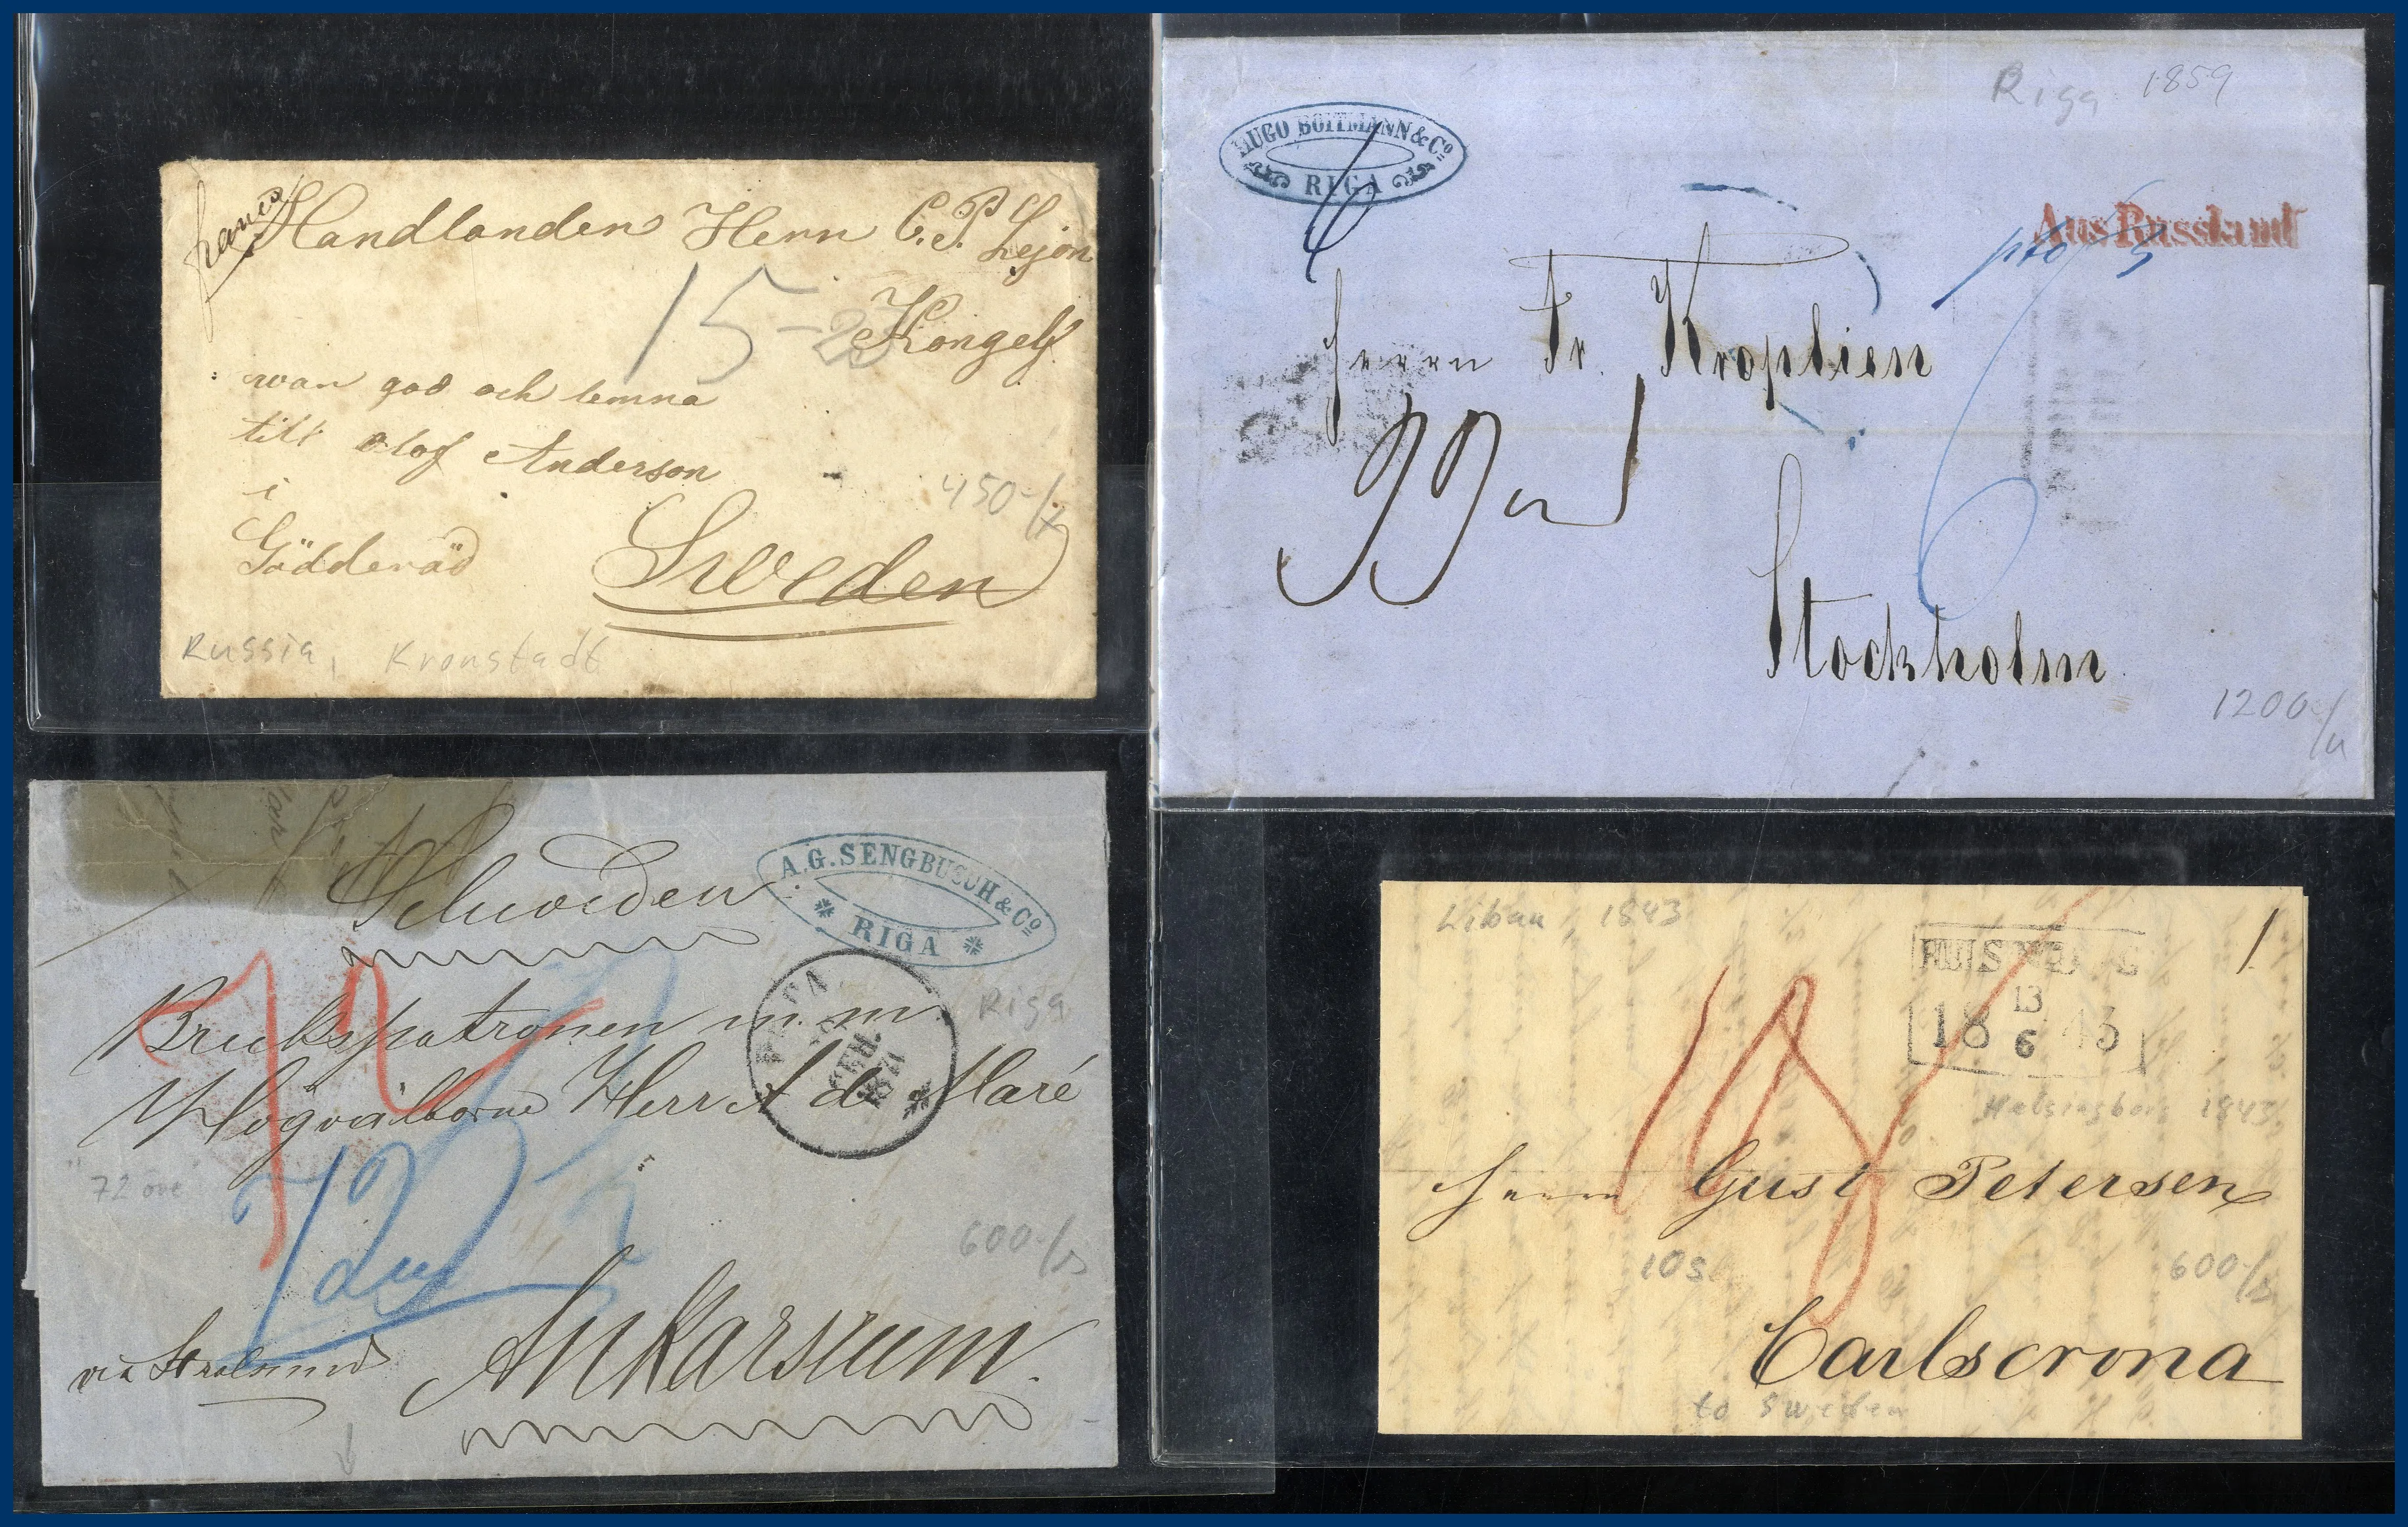 franco
Handlanden Herrn C. P. Lejon
15-
Kongelf
war god och lemna
till Olof Anderson
i
Göddered
450-/
Sweden
Russia, Kronstadt
Riga 1859
HUGO BOITMANN & Co
RIGA
Aus Russland
Herrn Fr. Kroplien
6
Stockholm
1200-/
A. G. SENGBUSCH & Co
RIGA
Schweden
72
Riga
Brukspatronen m. m.
Högvälborne Herr A de Maré
1871
72 öre
12
600-/
via Stralsund
Ankarsrum.
Libau, 1843
13
1843
6
Helsingborg 1843
18
Herrn Gust Petersen
10s
600-/
Carlscrona
to Sweden